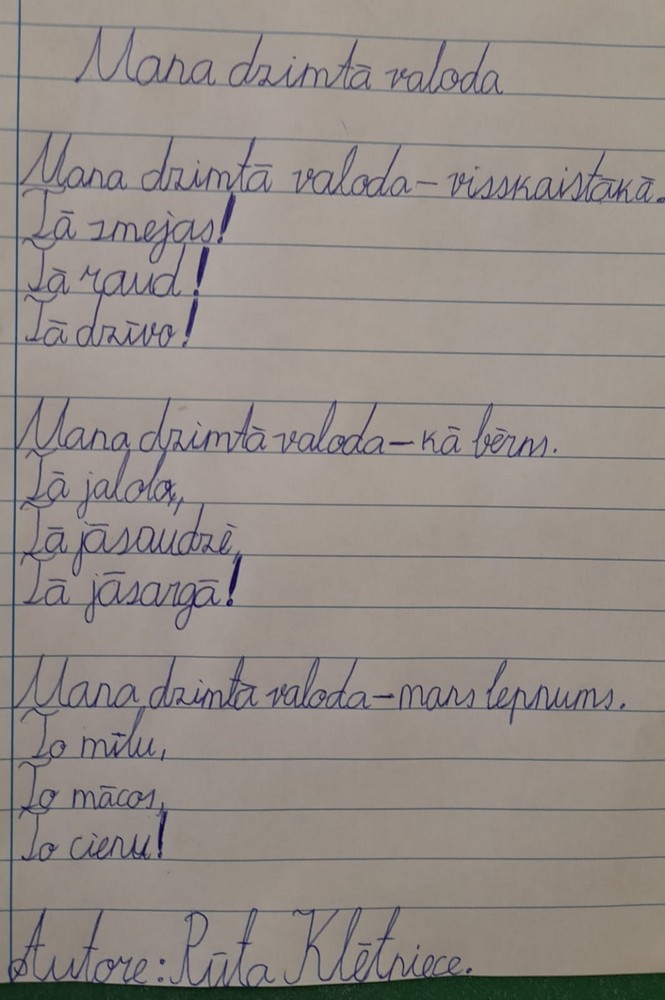 Mana dzimtā valoda
Mana dzimtā valoda – visskaistākā.
Tā smejas!
Tā raud!
Tā dzīvo!
Mana dzimtā valoda – kā bērns.
Tā jalola,
Tā jāsaudzē,
Tā jāsargā!
Mana dzimtā valoda – mans lepnums.
To mīlu,
To mācos,
To cienu!
Autore: Rūta Klētniece.